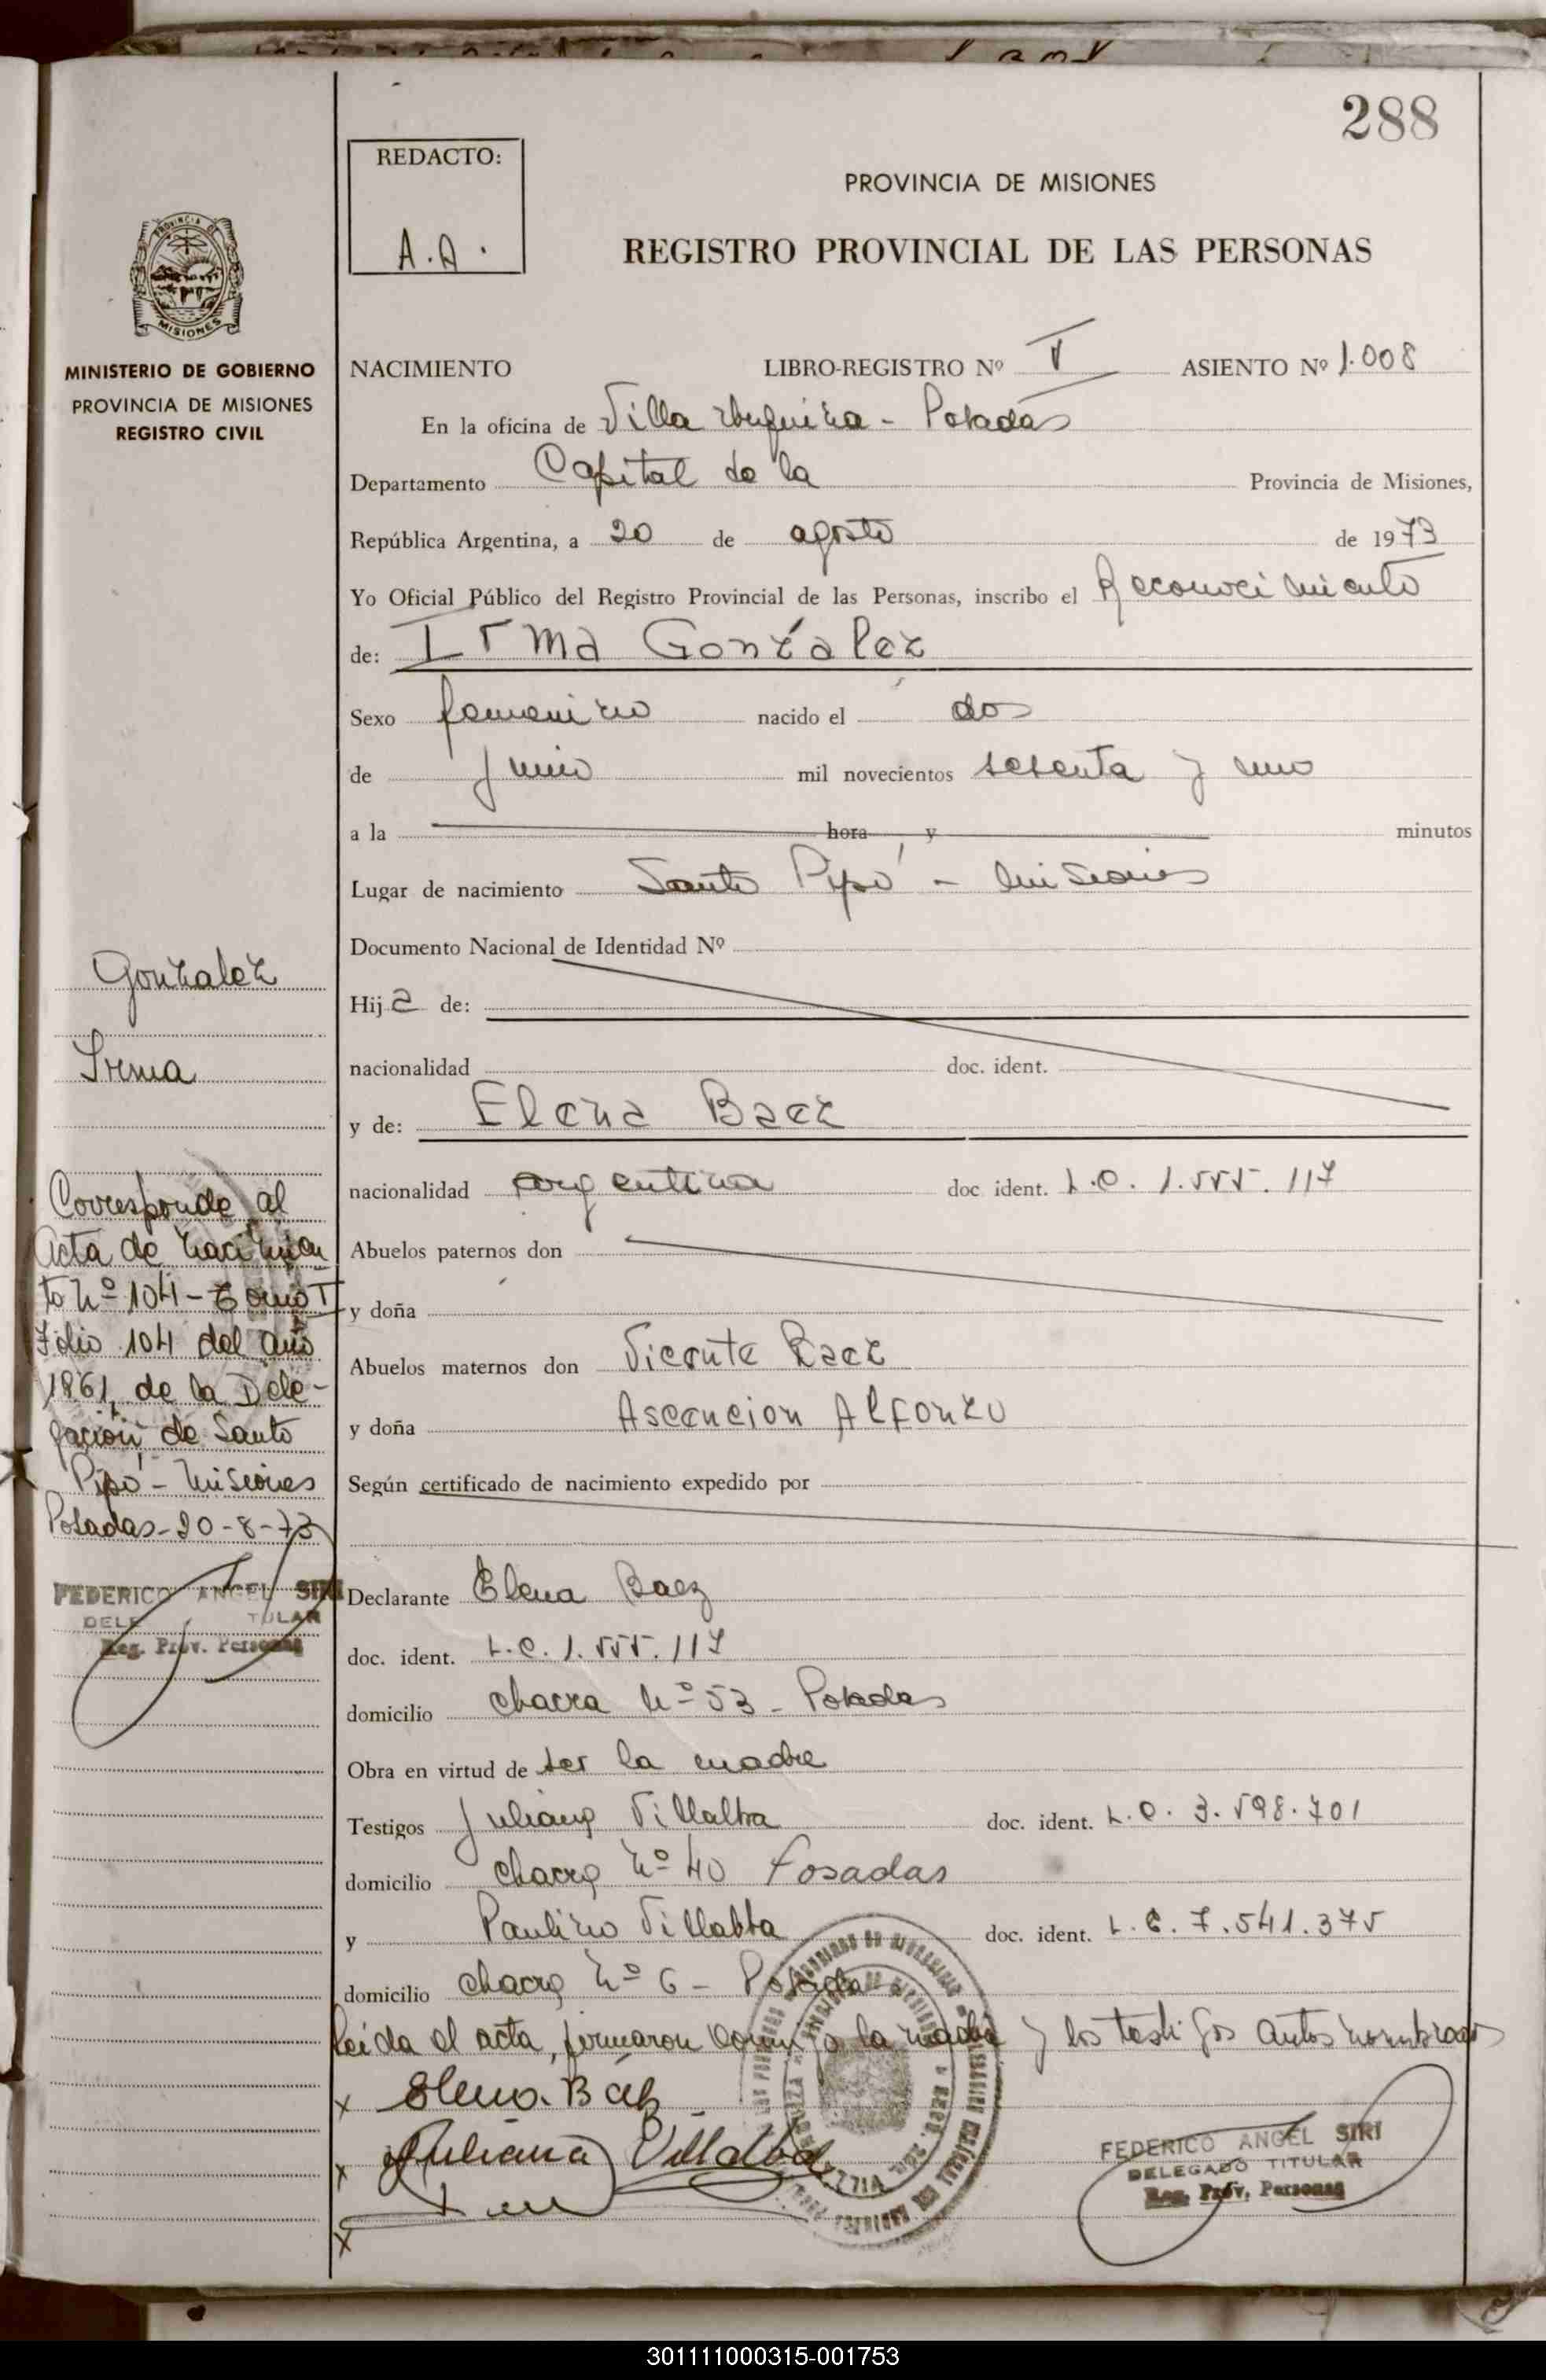 288
REDACTO:
A.A.
PROVINCIA DE MISIONES
REGISTRO PROVINCIAL DE LAS PERSONAS
MISIONES
MINISTERIO DE GOBIERNO
PROVINCIA DE MISIONES
REGISTRO CIVIL
NACIMIENTO LIBRO-REGISTRO Nº V ASIENTO Nº 1.008
En la oficina de Villa Urquiza - Posadas
Departamento Capital de la Provincia de Misiones,
República Argentina, a 20 de agosto de 1973
Yo Oficial Público del Registro Provincial de las Personas, inscribo el Reconocimiento
de: Irma González
Sexo femenino nacido el dos
de junio mil novecientos sesenta y uno
a la hora y minutos
Lugar de nacimiento Santo Pipó - Misiones
Documento Nacional de Identidad Nº
Hija de:
nacionalidad doc. ident.
y de: Elena Baez
nacionalidad argentina doc ident. L.C. 1.555.117
Abuelos paternos don
y doña
Abuelos maternos don Vicente Baez
y doña Ascencion Alfonzo
Según certificado de nacimiento expedido por
Declarante Elena Baez
doc. ident. L.C. 1.555.117
domicilio chacra Nº 53 - Posadas
Obra en virtud de ser la madre
Testigos Juliana Villalba doc. ident. L.C. 3.598.701
domicilio chacra Nº 40 Posadas
y Paulino Villalba doc. ident. L.E. 7.541.375
domicilio chacra Nº 6 - Posadas
Leida el acta, firmaron conmigo la madre y los testigos antes nombrados
x Elena Báez
x Juliana Villalba
x
FEDERICO ANGEL SIRI
DELEGADO TITULAR
Reg. Prov. Personas
Gonzalez
Irma
Corresponde al
Acta de nacimien
to Nº 104 - Tomo I
Folio 104 del año
1961, de la Dele-
gación de Santo
Pipó - Misiones
Posadas - 20-8-73
FEDERICO ANGEL SIRI
DELE TULAR
Reg. Prov. Personas
301111000315-001753